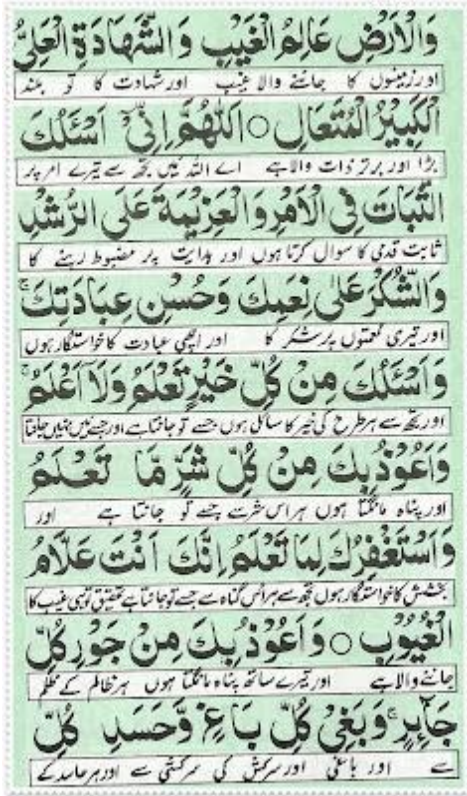 وَالْاَرْضِ عَالِمُ الْغَيْبِ وَالشَّهَادَةِ الْعَلِيُّ
اور زمینوں کا جاننے والا غیب اور شہادت کا تو بلند
الْكَبِيْرُ الْمُتَعَالِ ○ اَللّٰهُمَّ اِنِّيْ اَسْئَلُكَ
بڑا اور برتر ذات والا ہے اے اللہ میں تجھ سے تیرے امر پر
الثَّبَاتَ فِي الْاَمْرِ وَالْعَزِيْمَةَ عَلَى الرُّشْدِ
ثابت قدمی کا سوال کرتا ہوں اور ہدایت پر مضبوط رہنے کا
وَالشُّكْرَ عَلٰى نِعَمِكَ وَحُسْنِ عِبَادَتِكَ
اور تیری نعمتوں پر شکر کا اور اچھی عبادت کا خواستگار ہوں
وَاَسْئَلُكَ مِنْ كُلِّ خَيْرٍ تَعْلَمُ وَلَا اَعْلَمُ
اور تجھ سے ہر طرح کی خیر کا سائل ہوں جسے تو جانتا ہے اور جسے میں نہیں جانتا
وَاَعُوْذُ بِكَ مِنْ كُلِّ شَرِّ مَّا تَعْلَمُ
اور پناہ مانگتا ہوں ہر اس شر سے جسے تو جانتا ہے اور
وَاَسْتَغْفِرُكَ لِمَا تَعْلَمُ اِنَّكَ اَنْتَ عَلَّامُ
بخشش کا خواستگار ہوں تجھ سے ہر اس گناہ سے جسے تو جانتا ہے تحقیق تو ہی غیب کا
الْغُيُوْبِ ○ وَاَعُوْذُ بِكَ مِنْ جَوْرِ كُلِّ
جاننے والا ہے اور تیرے ساتھ پناہ مانگتا ہوں ہر ظالم کے ظلم
جَآئِرٍ وَبَغْيِ كُلِّ بَاغٍ وَّحَسَدِ كُلِّ
سے اور باغی اور سرکش کی سرکشی سے اور ہر حاسد کے